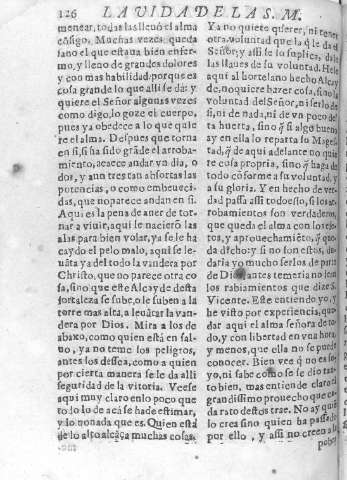 126 LA VIDA DE LAS. M.
menear, todas las lleuò el alma
cõsigo. Muchas vezes queda
sano el que estaua bien enfer-
mo, y lleno de grandes dolores
y con mas habilidad: porque es
cosa grande lo que alli se dà: y
quiere el Señor algunas vezes
como digo, lo goze el cuerpo,
pues ya obedece a lo que quie
re el alma. Despues que torna
en si, si ha sido grãde el arroba-
miento, acaece andar vn dia, o
dos, y aun tres tan absortas las
potencias, o como embeueci-
das, que no parece andan en si.
Aqui es la pena de auer de tor-
nar a viuir, aqui le naciero las
alas para bien volar, ya se le ha
caydo el pelo malo, aqui se le-
uãta ya del todo la vandera por
Christo, que no parece otra co
sa, sino que este Alcayde desta
fortaleza se sube, o le suben a la
torre mas alta, a leuãtar la van-
dera por Dios. Mira a los de
abaxo, como quien està en sal-
uo, ya no teme los peligros,
antes los dessea, como a quien
por cierta manera se le da alli
seguridad de la vitoria. Veese
aqui muy claro en lo poco que
todo lo de acà se ha de estimar,
y lo nonada que es. Quien està
de lo alto alcãça muchas cosas.
Ya no quiete querer, ni tener
otra voluntad que la q̃ le da el
Señor, y assi se lo suplica, dale
las llaues de su voluntad. Hele
aqui al hortelano hecho Alcay
de, no quiere hazer cosa, sino la
voluntad del Señor, ni serlo de
si, ni de nada, ni de vn poco de
sta huerta, sino q̃ si algo bueno
ay en ella lo reparta su Magest
tad, q̃ de aqui adelante no quie
re cosa propria, sino q̃ haga de
todo cõforme a su voluntad, y
a su gloria. Y en hecho de ver-
dad passa assi todo esto, si los ar
robamientos son verdaderos,
que queda el alma con los efe-
tos, y aprouechamiẽto, q̃ que-
da dicho: y si no son estos, du-
daria yo mucho serlos de parte
de Dios, antes temeria no sean
los rabiamientos que dize S.
Vicente. Este entiendo yo, y
he visto por experiencia, que-
dar aqui el alma señora de to-
do, y con libertad en vna hora,
y menos, que ella no se puede
conocer. Bien vee q̃ no es su-
yo, ni sabe como se le dio tan-
to bien, mas entiende claro el
grandissimo prouecho que ca-
da rato destos trae. No ay quiẽ
lo crea sino quien ha passado
por ello, y assi no creen a la
pobre